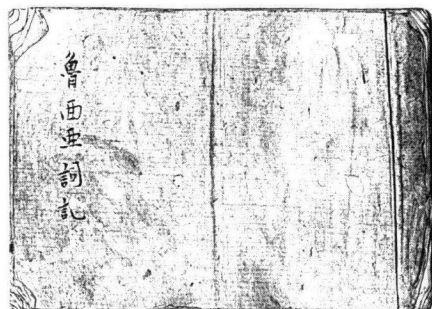 魯西亜詞記